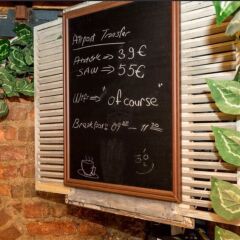 Airport Transfer
Ataturk → 39€
SAW → 55€
Wifi → "of course"
Breakfast 09⁰⁰ - 11³⁰